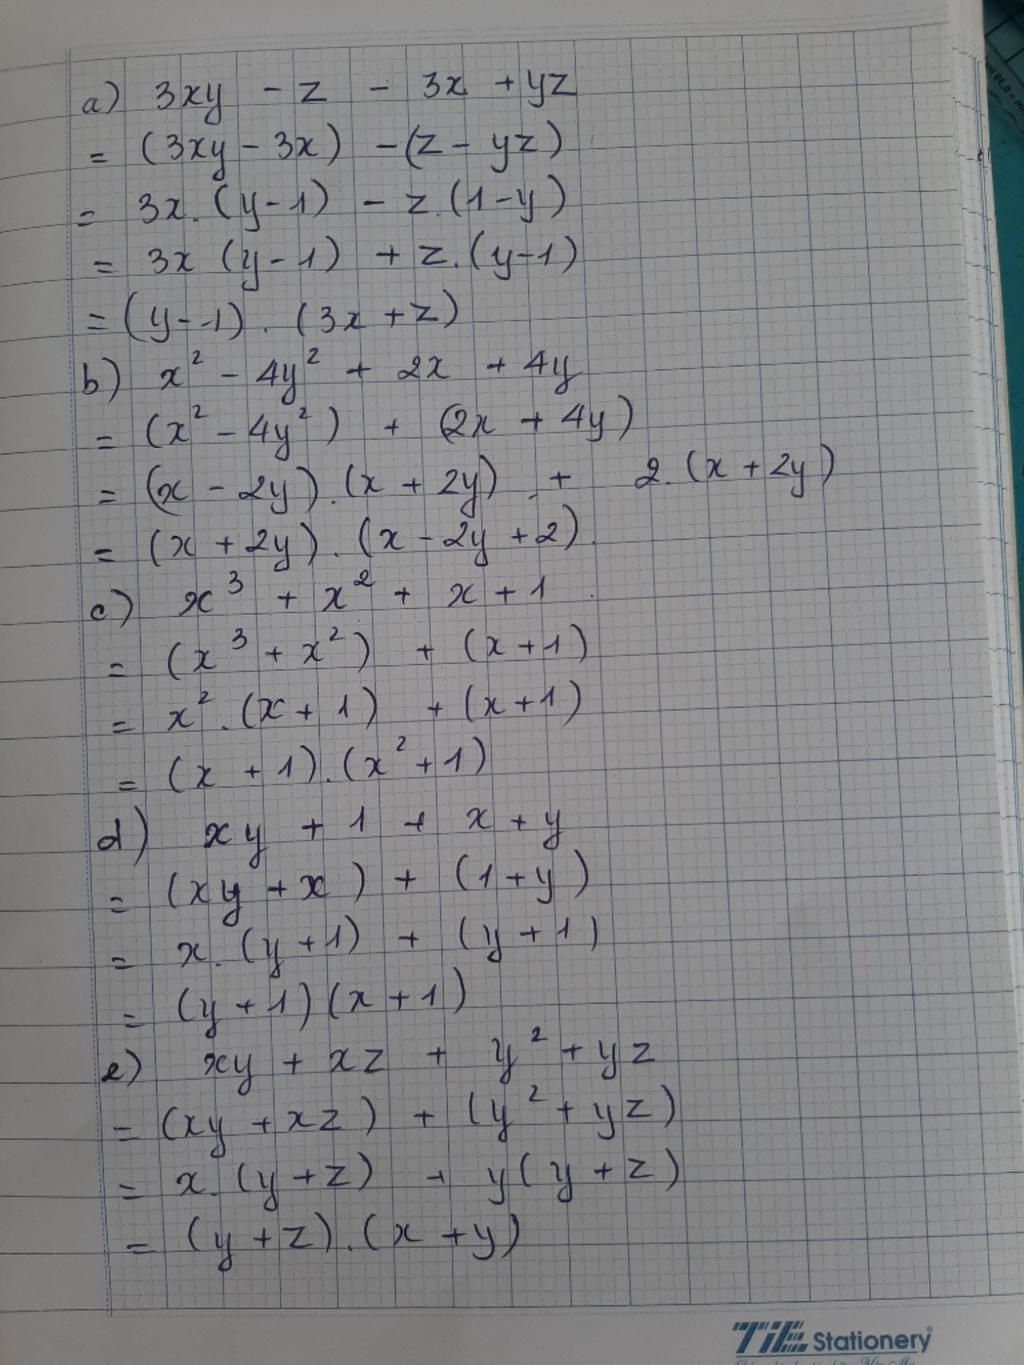 a) 3xy - z - 3x + yz
= (3xy - 3x) - (z - yz)
= 3x.(y-1) - z.(1-y)
= 3x (y-1) + z.(y-1)
= (y-1).(3x+z)
b) x² - 4y² + 2x + 4y
= (x² - 4y²) + (2x + 4y)
= (x - 2y).(x + 2y) + 2.(x + 2y)
= (x + 2y).(x - 2y + 2)
c) x³ + x² + x + 1
= (x³ + x²) + (x + 1)
= x².(x + 1) + (x + 1)
= (x + 1).(x² + 1)
d) xy + 1 + x + y
= (xy + x) + (1 + y)
= x.(y + 1) + (y + 1)
= (y + 1)(x + 1)
e) xy + xz + y² + yz
= (xy + xz) + (y² + yz)
= x.(y + z) + y(y + z)
= (y + z).(x + y)
TiE Stationery